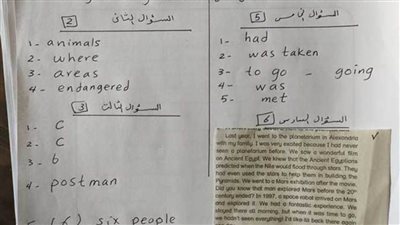 السؤال الثانى 2
1- animals
2- where
3- areas
4- endangered
السؤال الثالث 3
1- C
2- C
3- b
4- postman
six people
السؤال الخامس 5
1- had
2- was taken
3- to go - going
4- was
5- met
السؤال السادس 6
Last year, I went to the planetarium in Alexandria
with my family. I was very excited because I had never
seen a planetarium before. We saw a wonderful film
on Ancient Egypt. We knew that the Ancient Egyptians
predicted when the Nile would flood through stars. They
had even used the stars to help them in building the
Pyramids. We went to a Mars exhibition after the movie.
Did you know that man explored Mars before the 20th
century ended? In 1997, a space robot arrived on Mars
and explored it. We had a fantastic experience. We
stayed there all morning, but when it was time to go,
we hadn't seen everything! I'd like to go back there again